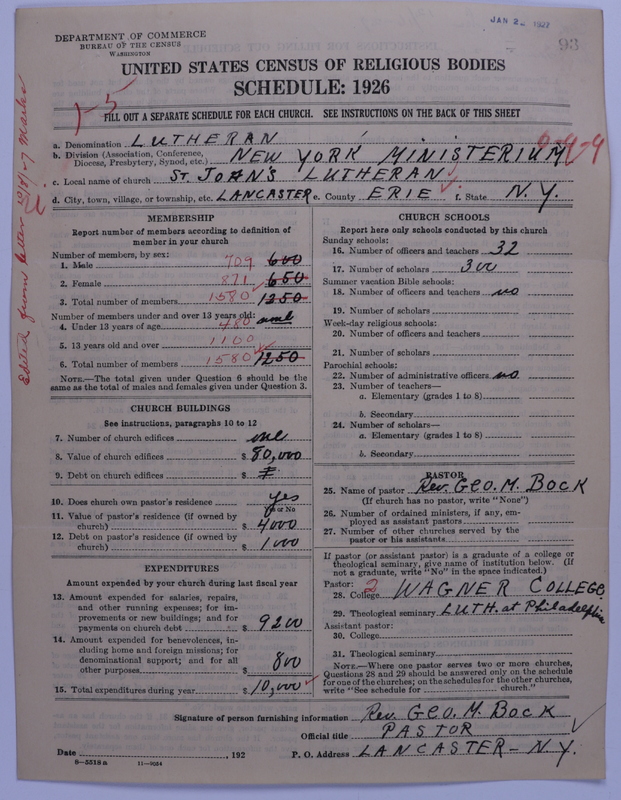 JAN 2 - 1927
93
DEPARTMENT OF COMMERCE
BUREAU OF THE CENSUS
WASHINGTON
UNITED STATES CENSUS OF RELIGIOUS BODIES
SCHEDULE: 1926
1-5
FILL OUT A SEPARATE SCHEDULE FOR EACH CHURCH. SEE INSTRUCTIONS ON THE BACK OF THIS SHEET
a. Denomination LUTHERAN
b. Division (Association, Conference, Diocese, Presbytery, Synod, etc.) NEW YORK MINISTERIUM
c. Local name of church ST. JOHN'S LUTHERAN
d. City, town, village, or township, etc. LANCASTER e. County ERIE f. State N.Y.
MEMBERSHIP
Report number of members according to definition of
member in your church
Number of members, by sex:
1. Male 709 600
2. Female 871 650
3. Total number of members 1580 1250
Number of members under and over 13 years old:
4. Under 13 years of age 480 none
5. 13 years old and over 1100
6. Total number of members 1580 1250
NOTE.—The total given under Question 6 should be the
same as the total of males and females given under Question 3.
CHURCH BUILDINGS
See instructions, paragraphs 10 to 12
7. Number of church edifices one
8. Value of church edifices $ 80,000
9. Debt on church edifices $
10. Does church own pastor's residence yes
Yes or No
11. Value of pastor's residence (if owned by
church) $ 4000
12. Debt on pastor's residence (if owned by
church) $ 1000
EXPENDITURES
Amount expended by your church during last fiscal year
13. Amount expended for salaries, repairs,
and other running expenses; for im-
provements or new buildings; and for
payments on church debt $ 9200
14. Amount expended for benevolences, in-
cluding home and foreign missions; for
denominational support; and for all
other purposes $ 800
15. Total expenditures during year $ 10,000
CHURCH SCHOOLS
Report here only schools conducted by this church
Sunday schools:
16. Number of officers and teachers 32
17. Number of scholars 300
Summer vacation Bible schools:
18. Number of officers and teachers no
19. Number of scholars
Week-day religious schools:
20. Number of officers and teachers
21. Number of scholars
Parochial schools:
22. Number of administrative officers no
23. Number of teachers—
a. Elementary (grades 1 to 8)
b. Secondary
24. Number of scholars—
a. Elementary (grades 1 to 8)
b. Secondary
PASTOR
25. Name of pastor Rev. GEO. M. BOCK
(If church has no pastor, write "None")
26. Number of ordained ministers, if any, em-
ployed as assistant pastors
27. Number of other churches served by the
pastor or his assistants
If pastor (or assistant pastor) is a graduate of a college or
theological seminary, give name of institution below. (If
not a graduate, write "No" in the space indicated.)
Pastor: 2
28. College WAGNER COLLEGE
29. Theological seminary LUTH. at Philadelphia
Assistant pastor:
30. College
31. Theological seminary
NOTE.—Where one pastor serves two or more churches,
Questions 28 and 29 should be answered only on the schedule
for one of the churches; on the schedules for the other churches,
write "See schedule for church."
Signature of person furnishing information Rev. GEO. M. BOCK
Official title PASTOR
Date , 192 P. O. Address LANCASTER - N.Y.
8-5518a 11-9054